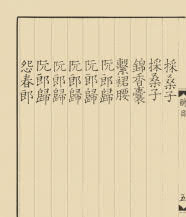 採桑子
採桑子
錦香囊
繫裙腰
阮郎歸
阮郎歸
阮郎歸
阮郎歸
阮郎歸
怨春郎